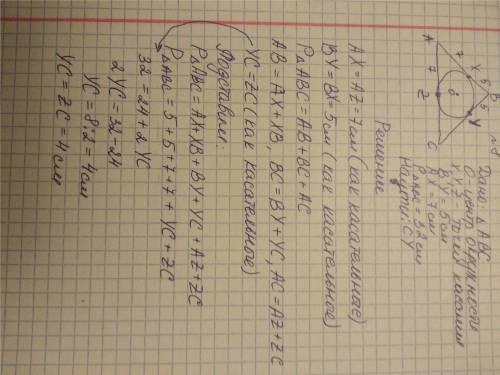 №1
B
5
5
X
Y
7
O
A
7
Z
C
Дано: △ABC
O-центр окружности
X,Y,Z-точки касания
BY=5см
AX=7см
P△ABC=32см
Найти: CY
Решение
AX=AZ=7см (как касательные)
BY=BX=5см (как касательное)
P△ABC=AB+BC+AC
AB=AX+XB, BC=BY+YC, AC=AZ+ZC
YC=ZC (как касательное)
Подставим:
P△ABC=AX+XB+BY+YC+AZ+ZC
P△ABC=5+5+7+7+YC+ZC
32=24+2YC
2YC=32-24
YC=8:2=4см
YC=ZC=4см